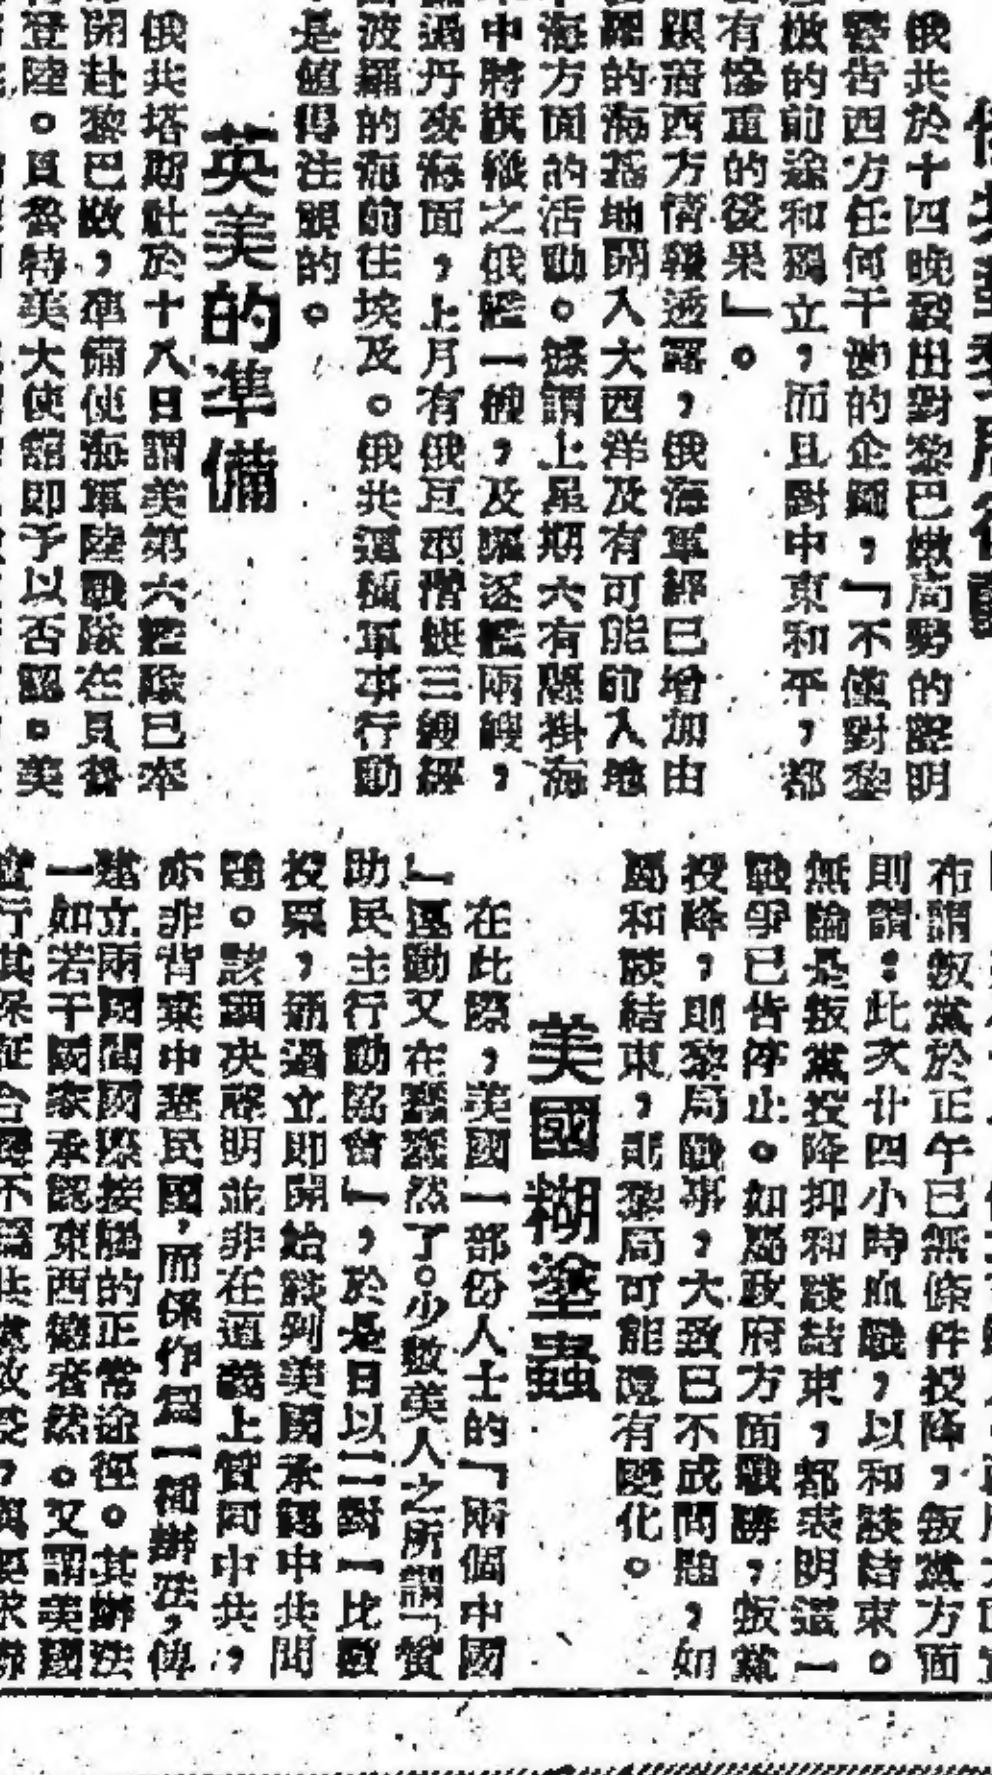 俄共於十四晚發出對黎巴嫩局勢的聲明
警告西方任何干涉的企圖,「不僅對黎
嫩的前途和獨立,而且對中東和平,都
有慘重的後果」。
跟着西方情報透露,俄海軍經已增加由
的海基地開入大西洋及有可能前入地
海方面的活動。據謂上星期六有懸掛海
中將旗幟之俄艦一艘,及驅逐艦兩艘,
過丹麥海面,上月有俄互型潛艇三艘經
波羅的海前往埃及。俄共這種軍事行動
是值得注視的。
英美的準備
俄共塔斯社於十八日謂美第六艦隊已奉
開赴黎巴嫩,準備使海軍陸戰隊在貝魯
登陸。貝魯特美大使館即予以否認。美
布謂叛黨於正午已無條件投降,叛黨方面
則謂:此次廿四小時血戰,以和談結束。
無論是叛黨投降抑和談結束,都表明這一
戰爭已告停止。如屬政府方面戰勝,叛黨
投降,則黎局戰事,大致已不成問題,如
屬和談結束,則黎局可能還有變化。
美國糊塗蟲
在此際,美國一部份人士的「兩個中國
」運動又在蠢蠢然了。少數美人之所謂「贊
助民主行動協會」,於是日以二對一比數
投票,通過立即開始談判美國承認中共問
題。該項決議聲明並非在道義上贊同中共,
亦非背棄中華民國,而係作爲一種辦法,俾
建立兩國間國際接觸的正常途徑。其辦法
一如若干國家承認東西德者然。又謂美國